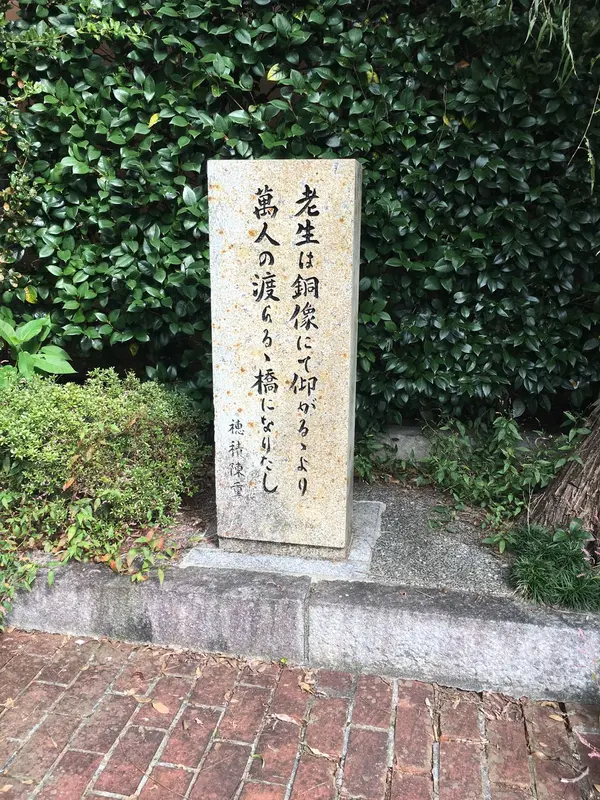 老生は銅像にて仰がるゝより
萬人の渡らるゝ橋になりたし
穂積陳重